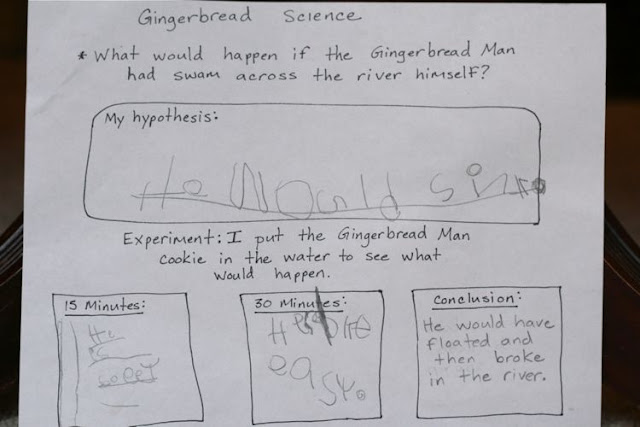 Gingerbread Science
* What would happen if the Gingerbread Man
had swam across the river himself?
My hypothesis:
He Would sink
Experiment: I put the Gingerbread Man
cookie in the water to see what
would happen.
15 Minutes:
He
is
30 Minutes:
He broke
easy.
Conclusion:
He would have
floated and
then broke
in the river.